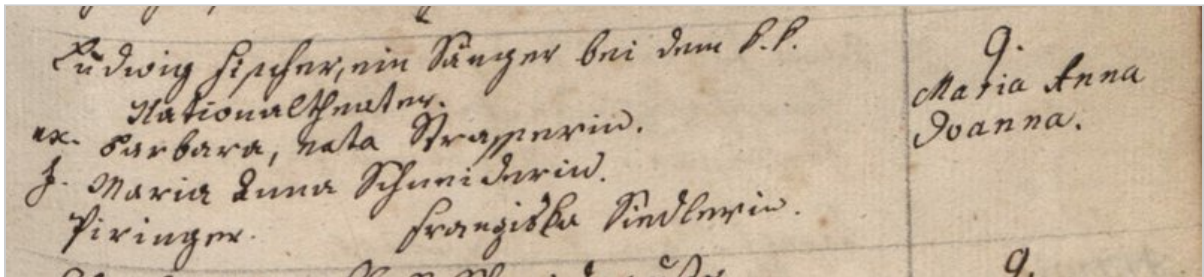 Ludwig Fischer, ein Sänger bei dem k. k.
Nationaltheater.
ux. Barbara, nata Strasserin.
Maria Anna Schneiderin.
Piringer. Franziska Siedlerin.
9.
Maria Anna
Joanna.
9.